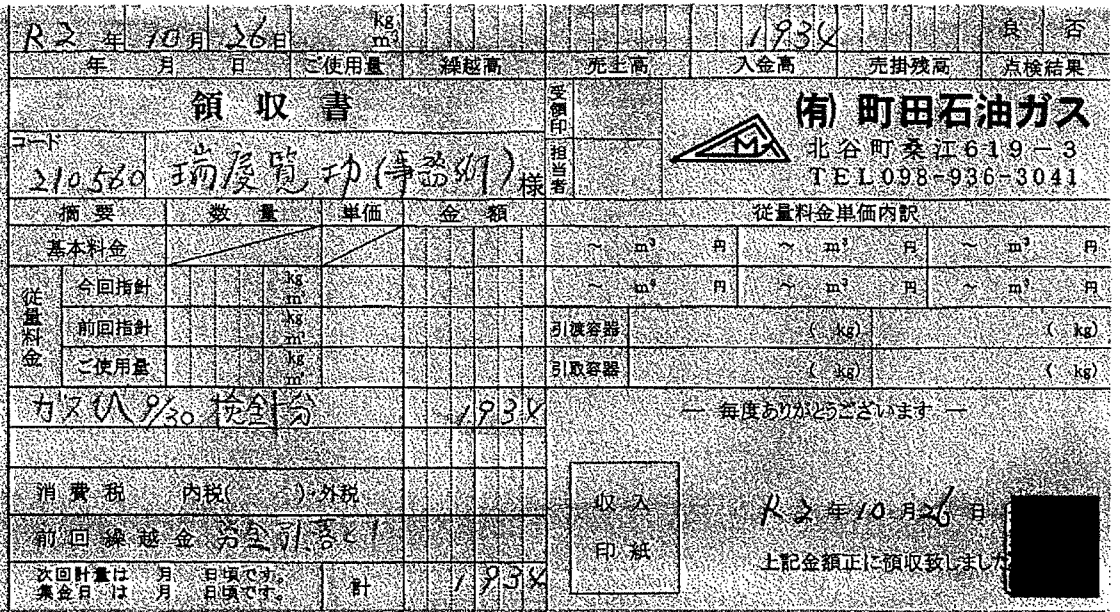 R2 年 10 月 26 日 kg m³ 1,934 良 否
年 月 日 ご使用量 繰越高 売上高 入金高 売掛残高 点検結果
領収書
受領印
担当者
(有) 町田石油ガス
北谷町桑江619-3
TEL098-936-3041
コード
210560 瑞慶覧 功 (事務所) 様
摘要 数量 単価 金額 従量料金単価内訳
基本料金 ~ m³ 円 ~ m³ 円 ~ m³ 円
従量料金
今回指針 kg m³ ~ m³ 円 ~ m³ 円 ~ m³ 円
前回指針 kg m³ 引渡容器 ( kg) ( kg)
ご使用量 kg m³ 引取容器 ( kg) ( kg)
ガス代 9/30 検針分 1,934
― 毎度ありがとうございます ―
消費税 内税( )・外税
前回繰越金
収入印紙
R2 年 10 月 26 日
上記金額正に領収致しました
次回計量は 月 日頃です。
集金日は 月 日頃です。
計 1,934